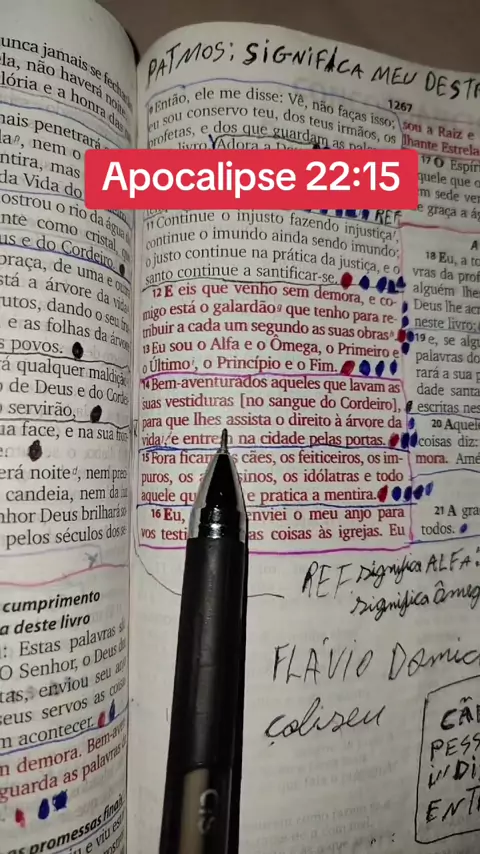 PATMOS: SIGNIFICA MEU
1267
unca jamais se
ela, não haverá noite
lória e a honra das
mais penetrará
nem o
ntira, mas
da Vida do
ostrou o rio da água
ante como cristal, que
us e do Cordeiro.
praça, de uma e
stá a árvore da vida
rutos, dando o seu
e as folhas da árvore
s povos.
rá qualquer maldição
o de Deus e do Corde
servirão.
ua face, e na sua
erá noite, nem preci
candeia, nem da luz
nhor Deus brilhará so
pelos séculos dos
cumprimento
a deste livro
: Estas palavras são
O Senhor, o Deus
tas, enviou seu anjo
seus servos as coisas
m acontecer.
m demora. Bem-av
guarda as palavras d
as promessas finais
Então, ele me disse: Vê, não faças isso;
eu sou conservo teu, dos teus irmãos, os
profetas, e dos que guardam as
livro. Adora a
Apocalipse 22:15
11 Continue o injusto fazendo injustiça,
continue o imundo ainda sendo imundo;
o justo continue na prática da justiça, e o
santo continue a santificar-se.
12 E eis que venho sem demora, e co-
migo está o galardão que tenho para re-
tribuir a cada um segundo as suas obras.
13 Eu sou o Alfa e o Ômega, o Primeiro e
o Último, o Princípio e o Fim.
14 Bem-aventurados aqueles que lavam as
suas vestiduras [no sangue do Cordeiro],
para que lhes assista o direito à árvore da
vida, e entrem na cidade pelas portas.
15 Fora ficam os cães, os feiticeiros, os im-
puros, os assassinos, os idólatras e todo
aquele que e pratica a mentira.
16 Eu, enviei o meu anjo para
vos as coisas às igrejas. Eu
sou a Raiz e
lhante Estrela
17 O Espíri
quele que o
m sede ven
e graça a ág
REF
18 Eu, a
vras da prof
alguém lhes
Deus lhe acr
neste livro;
19 e, se algu
palavras do
tará a sua
da cidade santa
escritas nes
20 Aquele
coisas diz:
mora. Amé
21 A gra
todos.
REF significa ALFA:
significa
FLÁVIO
coliseu
CÃ
PESS
INDI
ENT